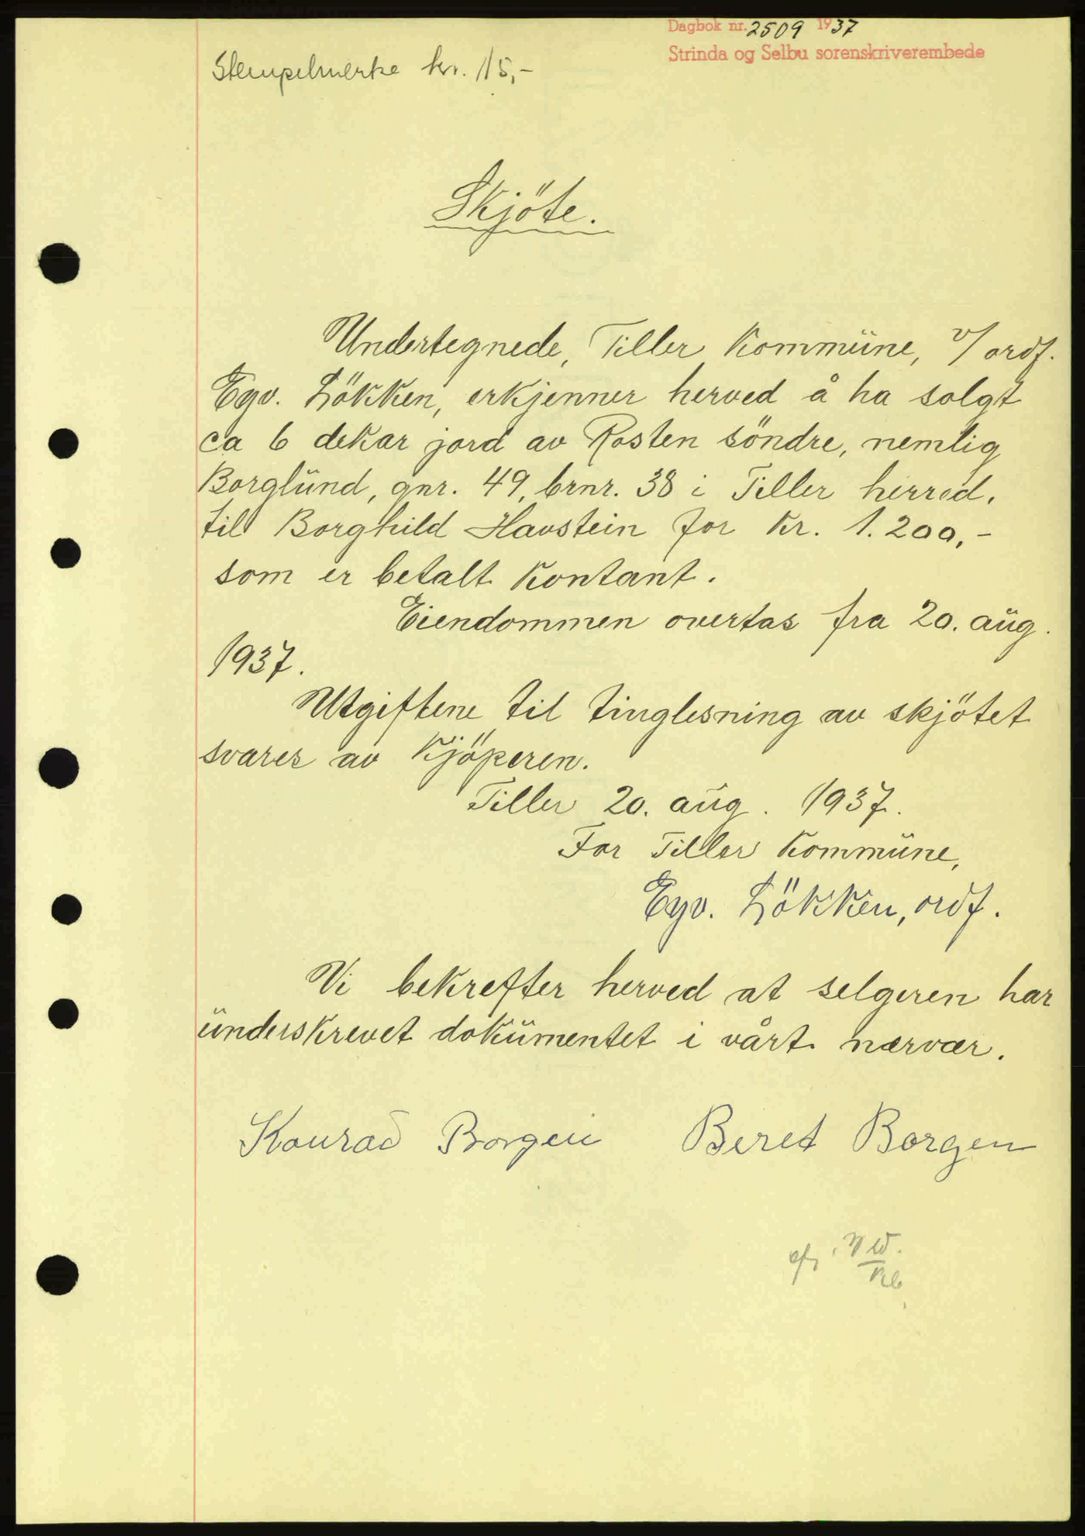 Dagbok nr. 2509 1937
Strinda og Selbu sorenskriverembede
Stempelmerke kr. 15,-
Skjöte.
Undertegnede, Tiller Kommune, v/ ordf.
Eyv. Lökken, erkjenner herved å ha solgt
ca 6 dekar jord av Rosten söndre, nemlig
Borglund, gnr. 49, brnr. 38 i Tiller herred,
til Borghild Havstein for kr. 1.200,-
som er betalt kontant.
Eiendommen overtas fra 20. aug.
1937.
Utgiftene til tinglesning av skjötet
svares av kjöperen.
Tiller 20. aug. 1937.
For Tiller Kommune,
Eyv. Lökken, ordf.
Vi bekrefter herved at selgeren har
underskrevet dokumentet i vårt nærvær.
Konrad Borgen Beret Borgen